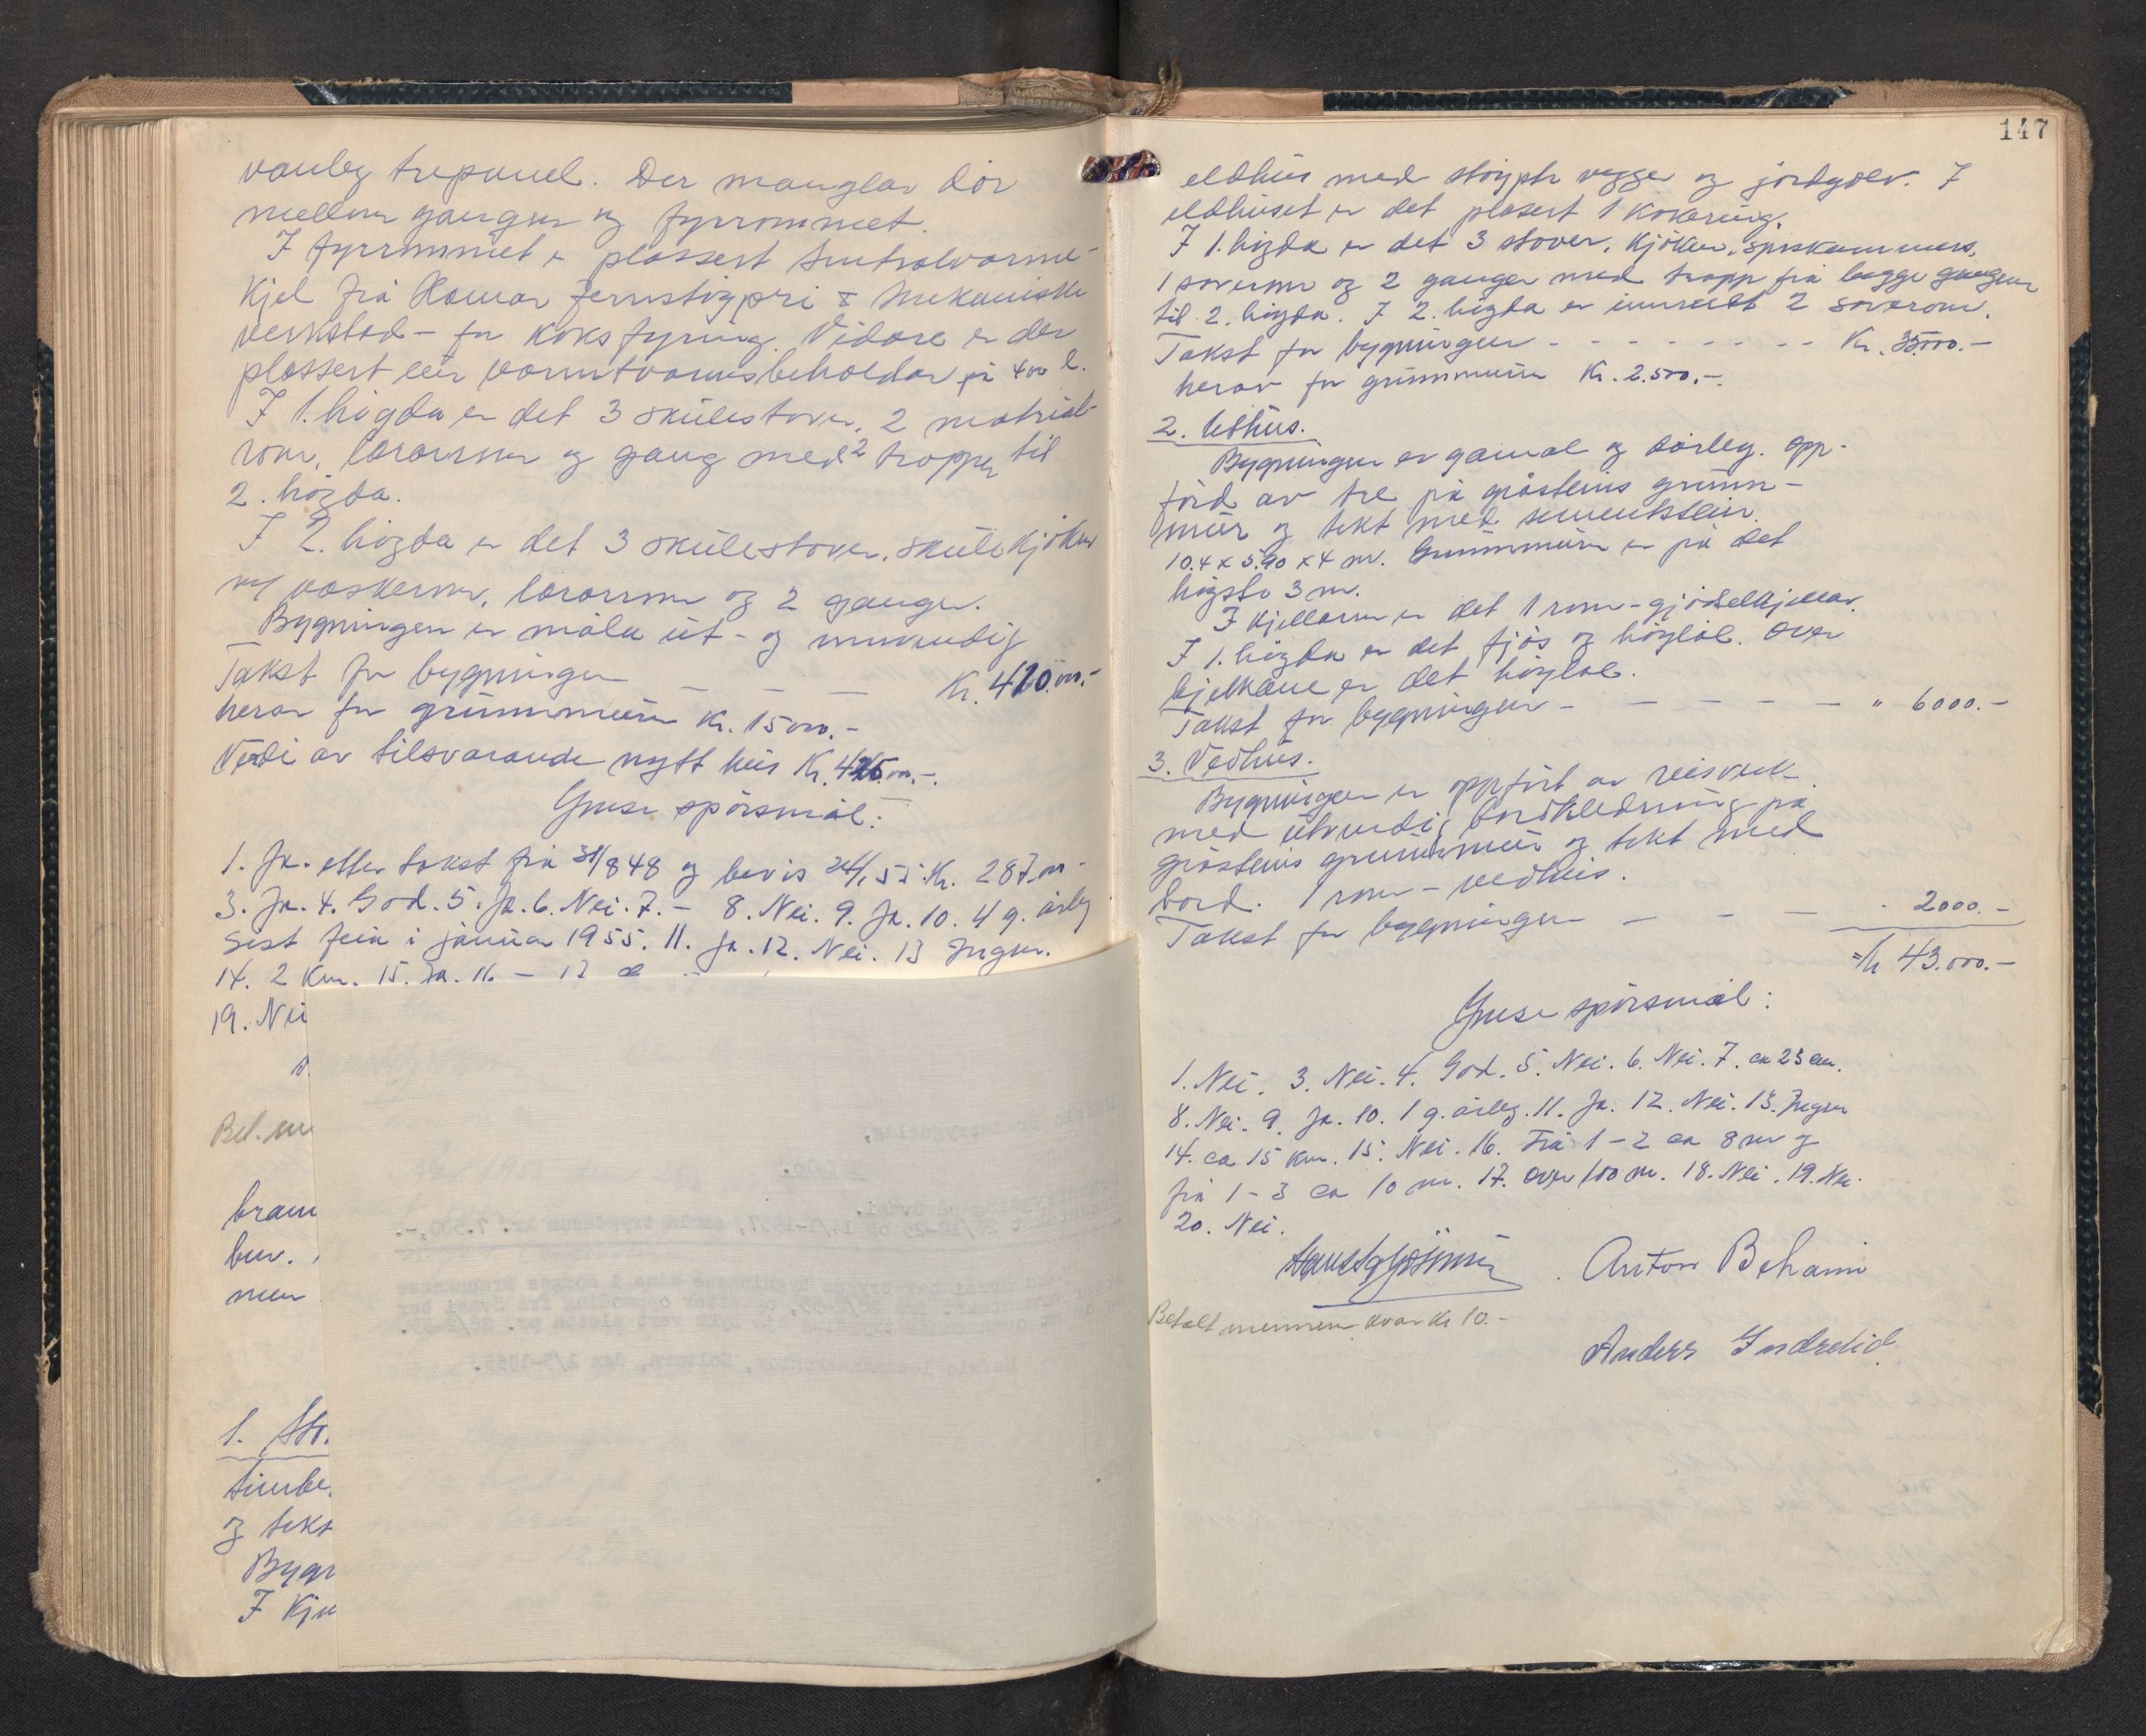 vanleg trepanel. Der manglar dør
mellom gangen og fyrrommet.
I fyrrommet er plassert sentralvarme-
kjel frå Hamar jernstøyperi & mekaniske
verkstad – for koksfyring. Vidare er der
plassert ein varmtvannsbeholdar på 400 l.
I 1. høgda er det 3 skulestover, 2 material-
rom, lærarrom og gang med 2 tropper til
2. høgda.
I 2. høgda er det 3 skulestover, skulekjøken
m/ vaskerom, lærarrom og 2 ganger.
Bygningen er måla ut- og innvendig
Takst for bygningen – – – Kr. 420.000.-
herav for grunnmuren Kr. 15000.-
Verdi av tilsvarande nytt hus Kr.
Ymse spørsmål:
1. Ja. etter takst frå 31/8 48 og bevis 24/1 55. Kr. 287.000
3. Ja. 4. God. 5. Ja. 6. Nei. 7. – 8. Nei. 9. Ja. 10. 4 g. årleg
sist feia i januar 1955. 11. Ja. 12. Nei. 13 Ingen.
14. 2 Km. 15. Ja. 16 – 17
19. Nei
Bet.
bran
bur.
men
1. Sto.
timbe.
og tekt
Bygn
I Kje
147
eldhus med støypte vegger og jordgolv. I
eldhuset er det plasert 1 kokering.
I 1. høgda er det 3 stover, kjøken, spiskammers,
1 soverom og 2 ganger med tropp frå begge gangene
til 2. høgda. I 2. høgda er innreidt 2 soverom.
Takst for bygningen - - - - - - - Kr. 35000.-
herav for grunnmuren Kr. 2.500.-.
2. Uthus.
Bygningen er gamal og dårleg. Opp-
førd av tre på gråsteins grunn-
mur og tekt med sementstein.
10.4 x 5.90 x 4 m. Grunnmuren er på det
høgste 3 m.
I kjellaren er det 1 rom – gjødselkjellar.
I 1. høgda er det fjøs og høyløe. Over
bjelkane er det høyløe.
Takst for bygningen - - - - - " 6000.-
3. Vedhus.
Bygningen er oppført av reisverk
med utvendig bordkledning på
gråsteins grunnmur og tekt med
bord. 1 rom – vedhus.
Takst for bygningen – – – - 2000.-
= Kr 43.000.-
Ymse spørsmål:
1. Nei. 3. Nei. 4. God. 5. Nei. 6. Nei. 7. ca 25 cm.
8. Nei. 9. Ja. 10. 1 g. årleg. 11. Ja. 12. Nei. 13. Ingen
14. ca 15 km. 15. Nei. 16. Frå 1 – 2 ca 8 m og
frå 1 – 3 ca 10 m. 17. over 100 m. 18. Nei. 19. Nei.
20. Nei.
Anton Behami
Betalt mennene kvar kr 10.-
Anders Indrelid